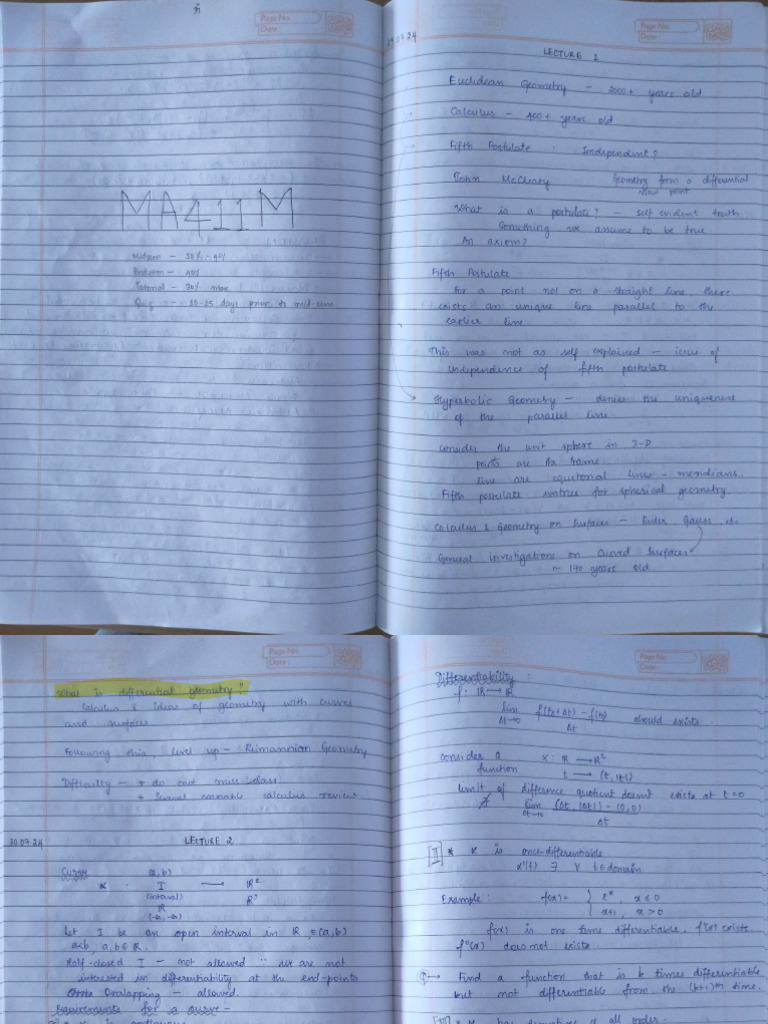 Page No.
Date:
MA411M
Midsem - 30% - 40%
Endsem - 40%
Tutorial - 20% max
Quiz - 20-25 days prior to mid-sem
Page No.
Date:
.07.24
LECTURE 1
Euclidean Geometry - 2000+ years old
Calculus - 400+ years old
Fifth Postulate : Independent?
John McCleary Geometry from a differential
view point
What is a postulate? - self evident truth
Something we assume to be true
An axiom?
Fifth Postulate
For a point not on a straight line, there
exists an unique line parallel to the
earlier line.
This was not as self explained - issue of
independence of fifth postulate
Hyperbolic Geometry - denies the uniqueness
of the parallel line.
Consider the unit sphere in 3-D
points are the same
line are equitorial lines - meridians.
Fifth postulate untrue for spherical geometry.
Calculus & Geometry on Surfaces - Euler, Gauss, etc
General investigations on Curved Surfaces
~ 190 years old.
Page No.
Date:
What is differential geometry?
Calculus & ideas of geometry with curves
and surfaces
Following this, level up - Reimannian Geometry
Difficulty - * do not miss class
* Several variable calculus review
30.07.24
LECTURE 2
Curve (a,b)
α : I ⟶ R²
(interval) R³
R
(-∞, ∞)
Let I be an open interval in R, =(a,b)
a<b, a,b∈R.
Half-closed I - not allowed ∵ we are not
interested in differentiability at the end-points
Overlapping - allowed.
Requirements for a curve -
α is continuous
Page No.
Date:
Differentiability :
f: R ⟶ R
lim f(t₀+Δt) - f(t₀) should exists
Δt→0 Δt
Consider a α: R ⟶ R²
function t ⟶ (t, |t|)
limit of difference quotient doesnt exists at t=0
lim (Δt, |Δt|) - (0,0)
Δt→0 Δt
[II] * α is once-differentiable
α'(t) ∃ ∀ t∈domain
Example: f(x) = { eˣ, x≤0
x+1, x>0
f(x) is one time differentiable, f'(x) exists.
f''(x) does not exists.
Q→ Find a function that is k times differentiable
but not differentiable from the (k+1)th time.
[III] * α has derivatives of all order-